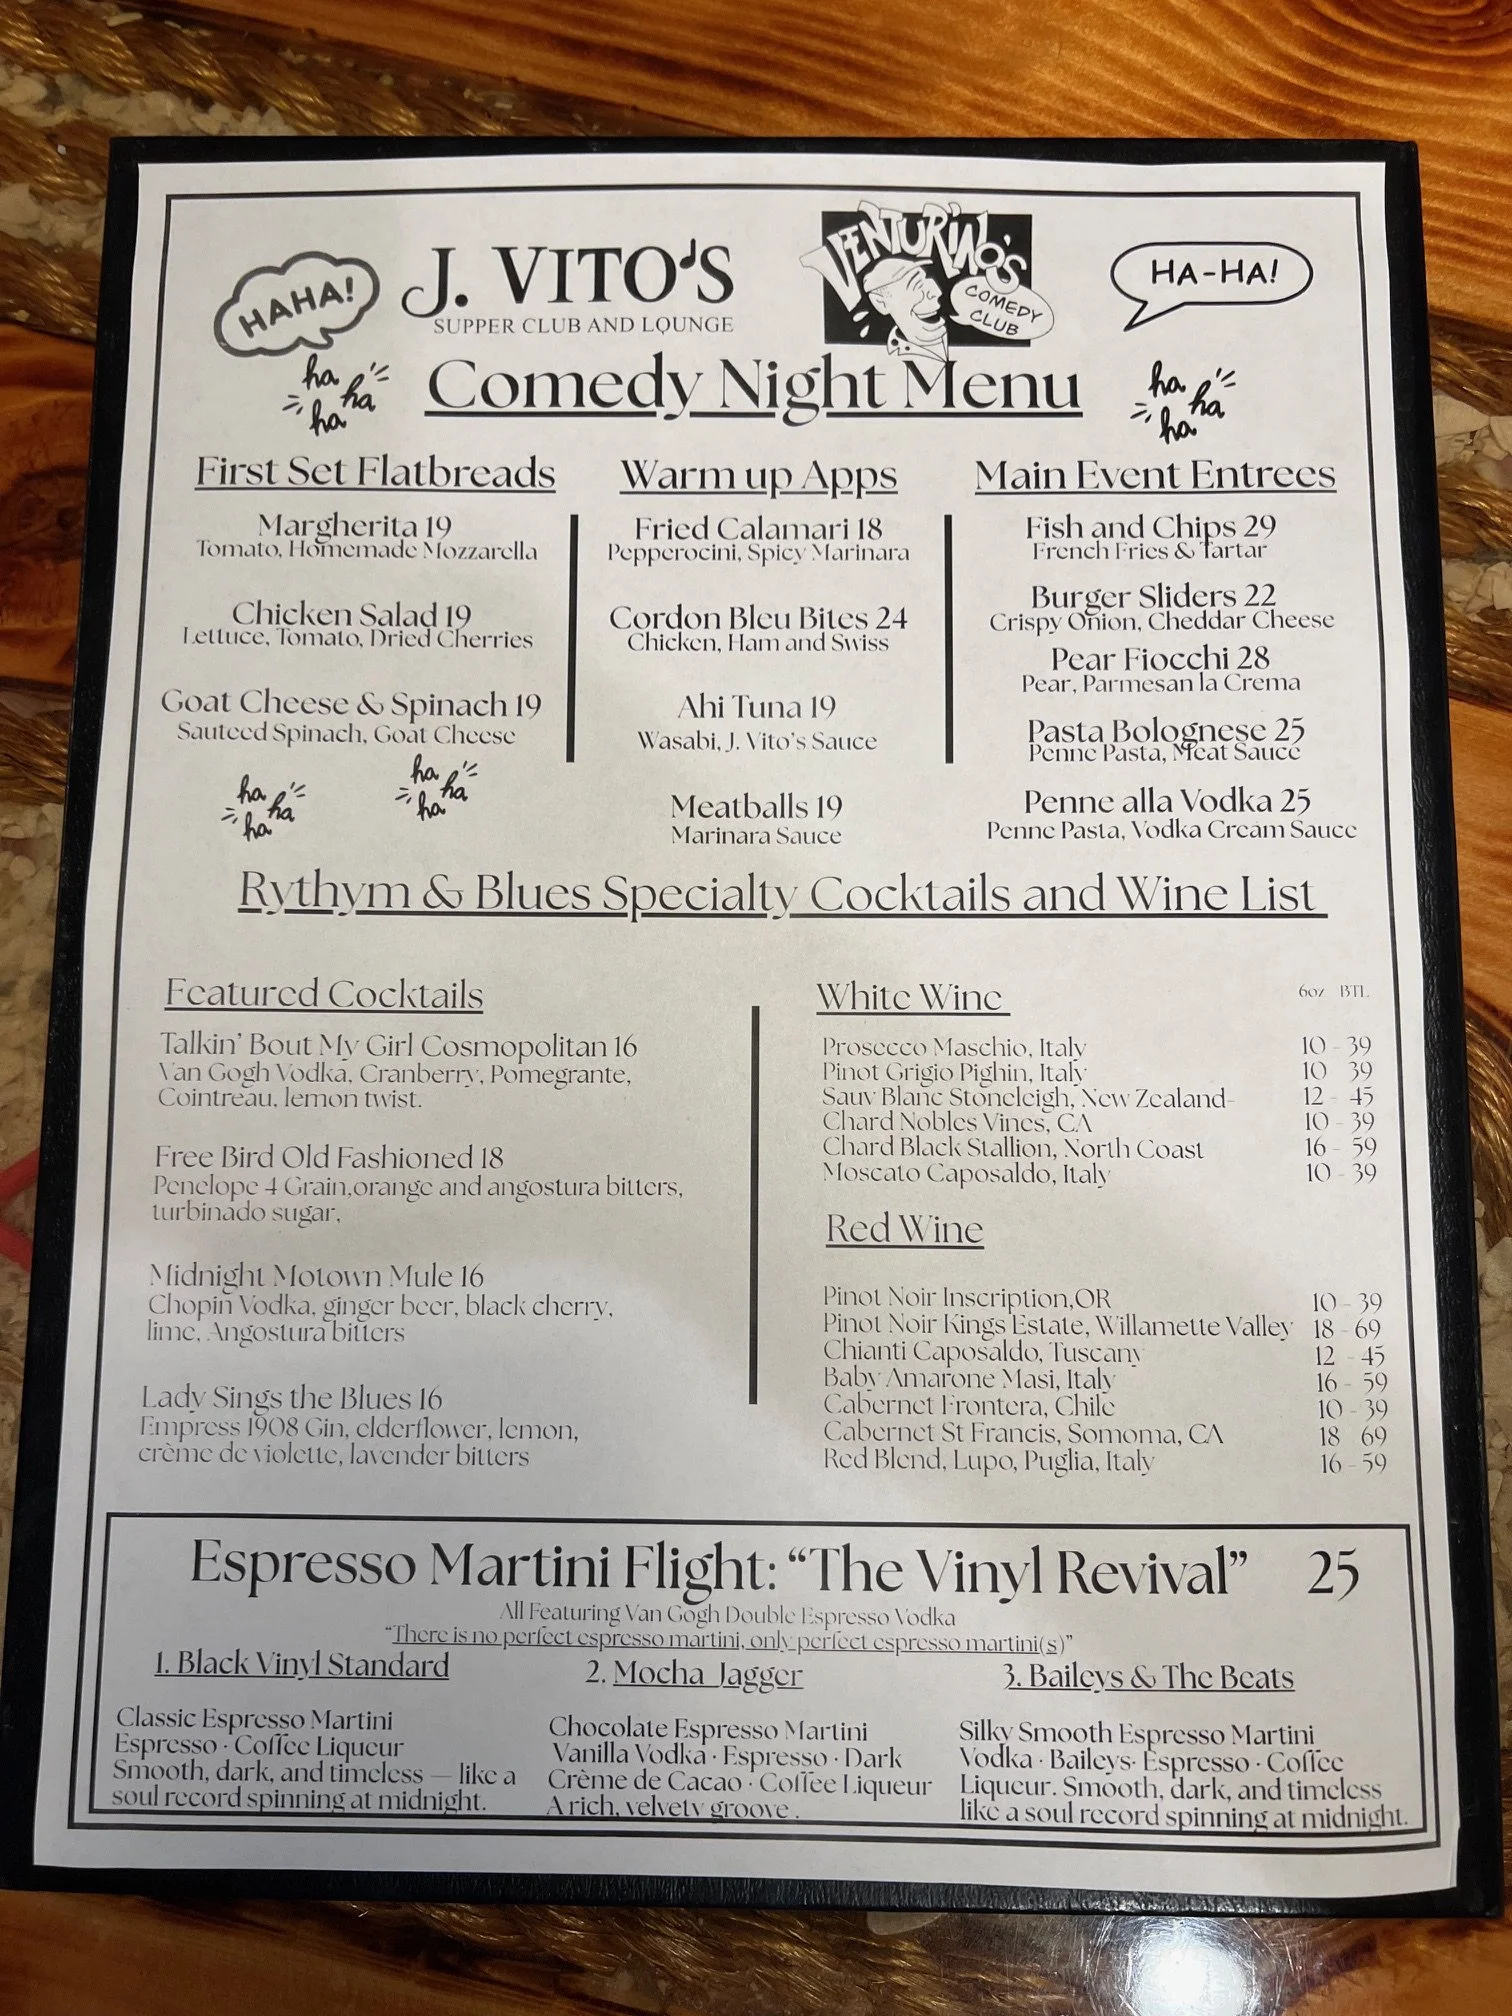 HAHA!
J. VITO'S
SUPPER CLUB AND LOUNGE
VENTURINO'S
COMEDY
CLUB
HA-HA!
ha
ha
ha
Comedy Night Menu
ha
ha
ha
First Set Flatbreads
Margherita 19
Tomato, Homemade Mozzarella
Chicken Salad 19
Lettuce, Tomato, Dried Cherries
Goat Cheese & Spinach 19
Sauteed Spinach, Goat Cheese
ha
ha
ha
ha
ha
ha
Warm up Apps
Fried Calamari 18
Pepperocini, Spicy Marinara
Cordon Bleu Bites 24
Chicken, Ham and Swiss
Ahi Tuna 19
Wasabi, J. Vito's Sauce
Meatballs 19
Marinara Sauce
Main Event Entrees
Fish and Chips 29
French Fries & Tartar
Burger Sliders 22
Crispy Onion, Cheddar Cheese
Pear Fiocchi 28
Pear, Parmesan la Crema
Pasta Bolognese 25
Penne Pasta, Meat Sauce
Penne alla Vodka 25
Penne Pasta, Vodka Cream Sauce
Rythym & Blues Specialty Cocktails and Wine List
Featured Cocktails
Talkin' Bout My Girl Cosmopolitan 16
Van Gogh Vodka, Cranberry, Pomegrante,
Cointreau, lemon twist.
Free Bird Old Fashioned 18
Penelope 4 Grain,orange and angostura bitters,
turbinado sugar,
Midnight Motown Mule 16
Chopin Vodka, ginger beer, black cherry,
lime, Angostura bitters
Lady Sings the Blues 16
Empress 1908 Gin, elderflower, lemon,
crème de violette, lavender bitters
White Wine 6oz BTL
Prosecco Maschio, Italy 10 - 39
Pinot Grigio Pighin, Italy 10 39
Sauv Blanc Stoneleigh, New Zealand- 12 - 45
Chard Nobles Vines, CA 10 - 39
Chard Black Stallion, North Coast 16 - 59
Moscato Caposaldo, Italy 10 - 39
Red Wine
Pinot Noir Inscription,OR 10 - 39
Pinot Noir Kings Estate, Willamette Valley 18 - 69
Chianti Caposaldo, Tuscany 12 - 45
Baby Amarone Masi, Italy 16 - 59
Cabernet Frontera, Chile 10 - 39
Cabernet St Francis, Somoma, CA 18 69
Red Blend, Lupo, Puglia, Italy 16 - 59
Espresso Martini Flight: “The Vinyl Revival” 25
All Featuring Van Gogh Double Espresso Vodka
“There is no perfect espresso martini, only perfect espresso martini(s)”
1. Black Vinyl Standard
Classic Espresso Martini
Espresso · Coffee Liqueur
Smooth, dark, and timeless — like a
soul record spinning at midnight.
2. Mocha Jagger
Chocolate Espresso Martini
Vanilla Vodka · Espresso · Dark
Crème de Cacao · Coffee Liqueur
A rich, velvety groove .
3. Baileys & The Beats
Silky Smooth Espresso Martini
Vodka · Baileys· Espresso · Coffee
Liqueur. Smooth, dark, and timeless
like a soul record spinning at midnight.